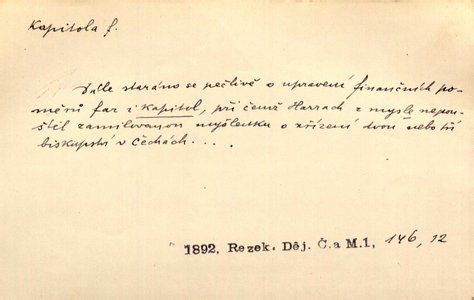 Kapitola f.
Dále staráno se pečlivě o upravení finančních po-
měrů far i kapitol, při čemž Harrach z mysle nepou-
štěl zamilovanou myšlenku o zřízení dvou nebo tří
biskupství v Čechách. . . .
1892, Rezek. Děj. Č. a M. 1, 146, 12